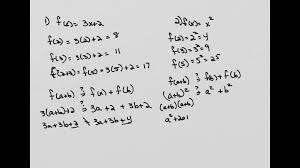 1) f(x) = 3x+2
f(2) = 3(2)+2 = 8
f(3) = 3(3)+2 = 11
f(2+3) = f(5) = 3(5)+2 = 17
f(a+b) ?= f(a) + f(b)
3(a+b)+2 ?= 3a+2 + 3b+2
3a+3b+2 ≠ 3a+3b+4
2) f(x) = x²
f(2) = 2² = 4
f(3) = 3² = 9
f(5) = 5² = 25
f(a+b) ?= f(a) + f(b)
(a+b)² ?= a² + b²
(a+b)(a+b)
a²+2a